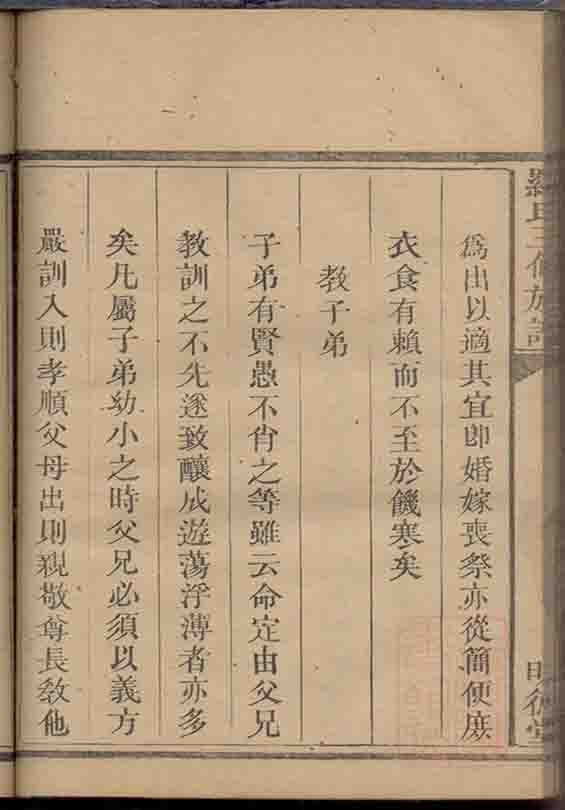 氏三修族譜
為出以適其宜即婚嫁喪祭亦從簡便庶
衣食有賴而不至於饑寒矣
教子弟
子弟有賢愚不肖之等雖云命定由父兄
教訓之不先遂致釀成遊蕩浮薄者亦多
矣凡屬子弟幼小之時父兄必須以義方
嚴訓入則孝順父母出則親敬尊長教他